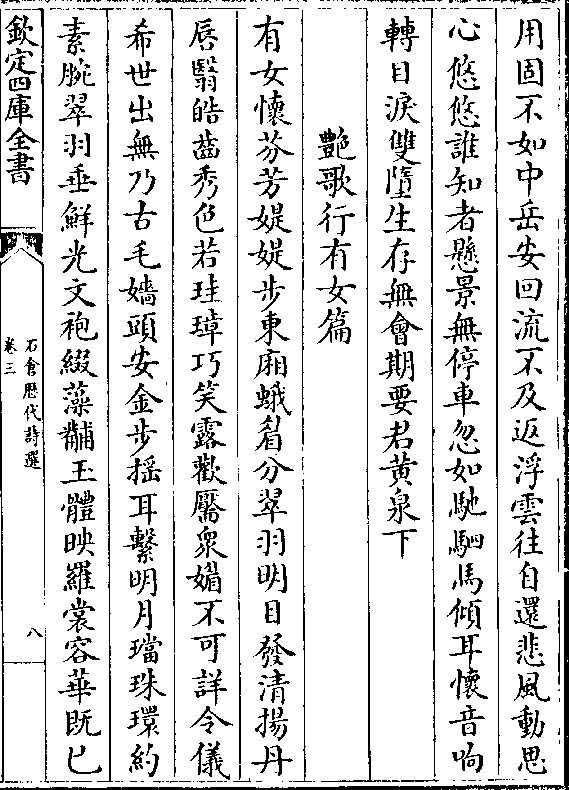 用固不如中岳安回流不及返浮雲往自還悲風動思
心悠悠誰知者懸景無停車忽如馳駟馬傾耳懷音响
轉目淚雙墮生存無會期要君黄泉下
豔歌行有女篇
有女懷芬芳媞媞步東廂蛾眉分翠羽明目發清揚丹
唇翳皓齒秀色若珪璋巧笑露歡靨衆媚不可詳令儀
希世出無乃古毛嬙頭安金步摇耳繫明月璫珠環約
素腕翠羽垂鮮光文袍綴藻黼玉體映羅裳容華既已
欽定四庫全書
石倉歷代詩選
卷三
八